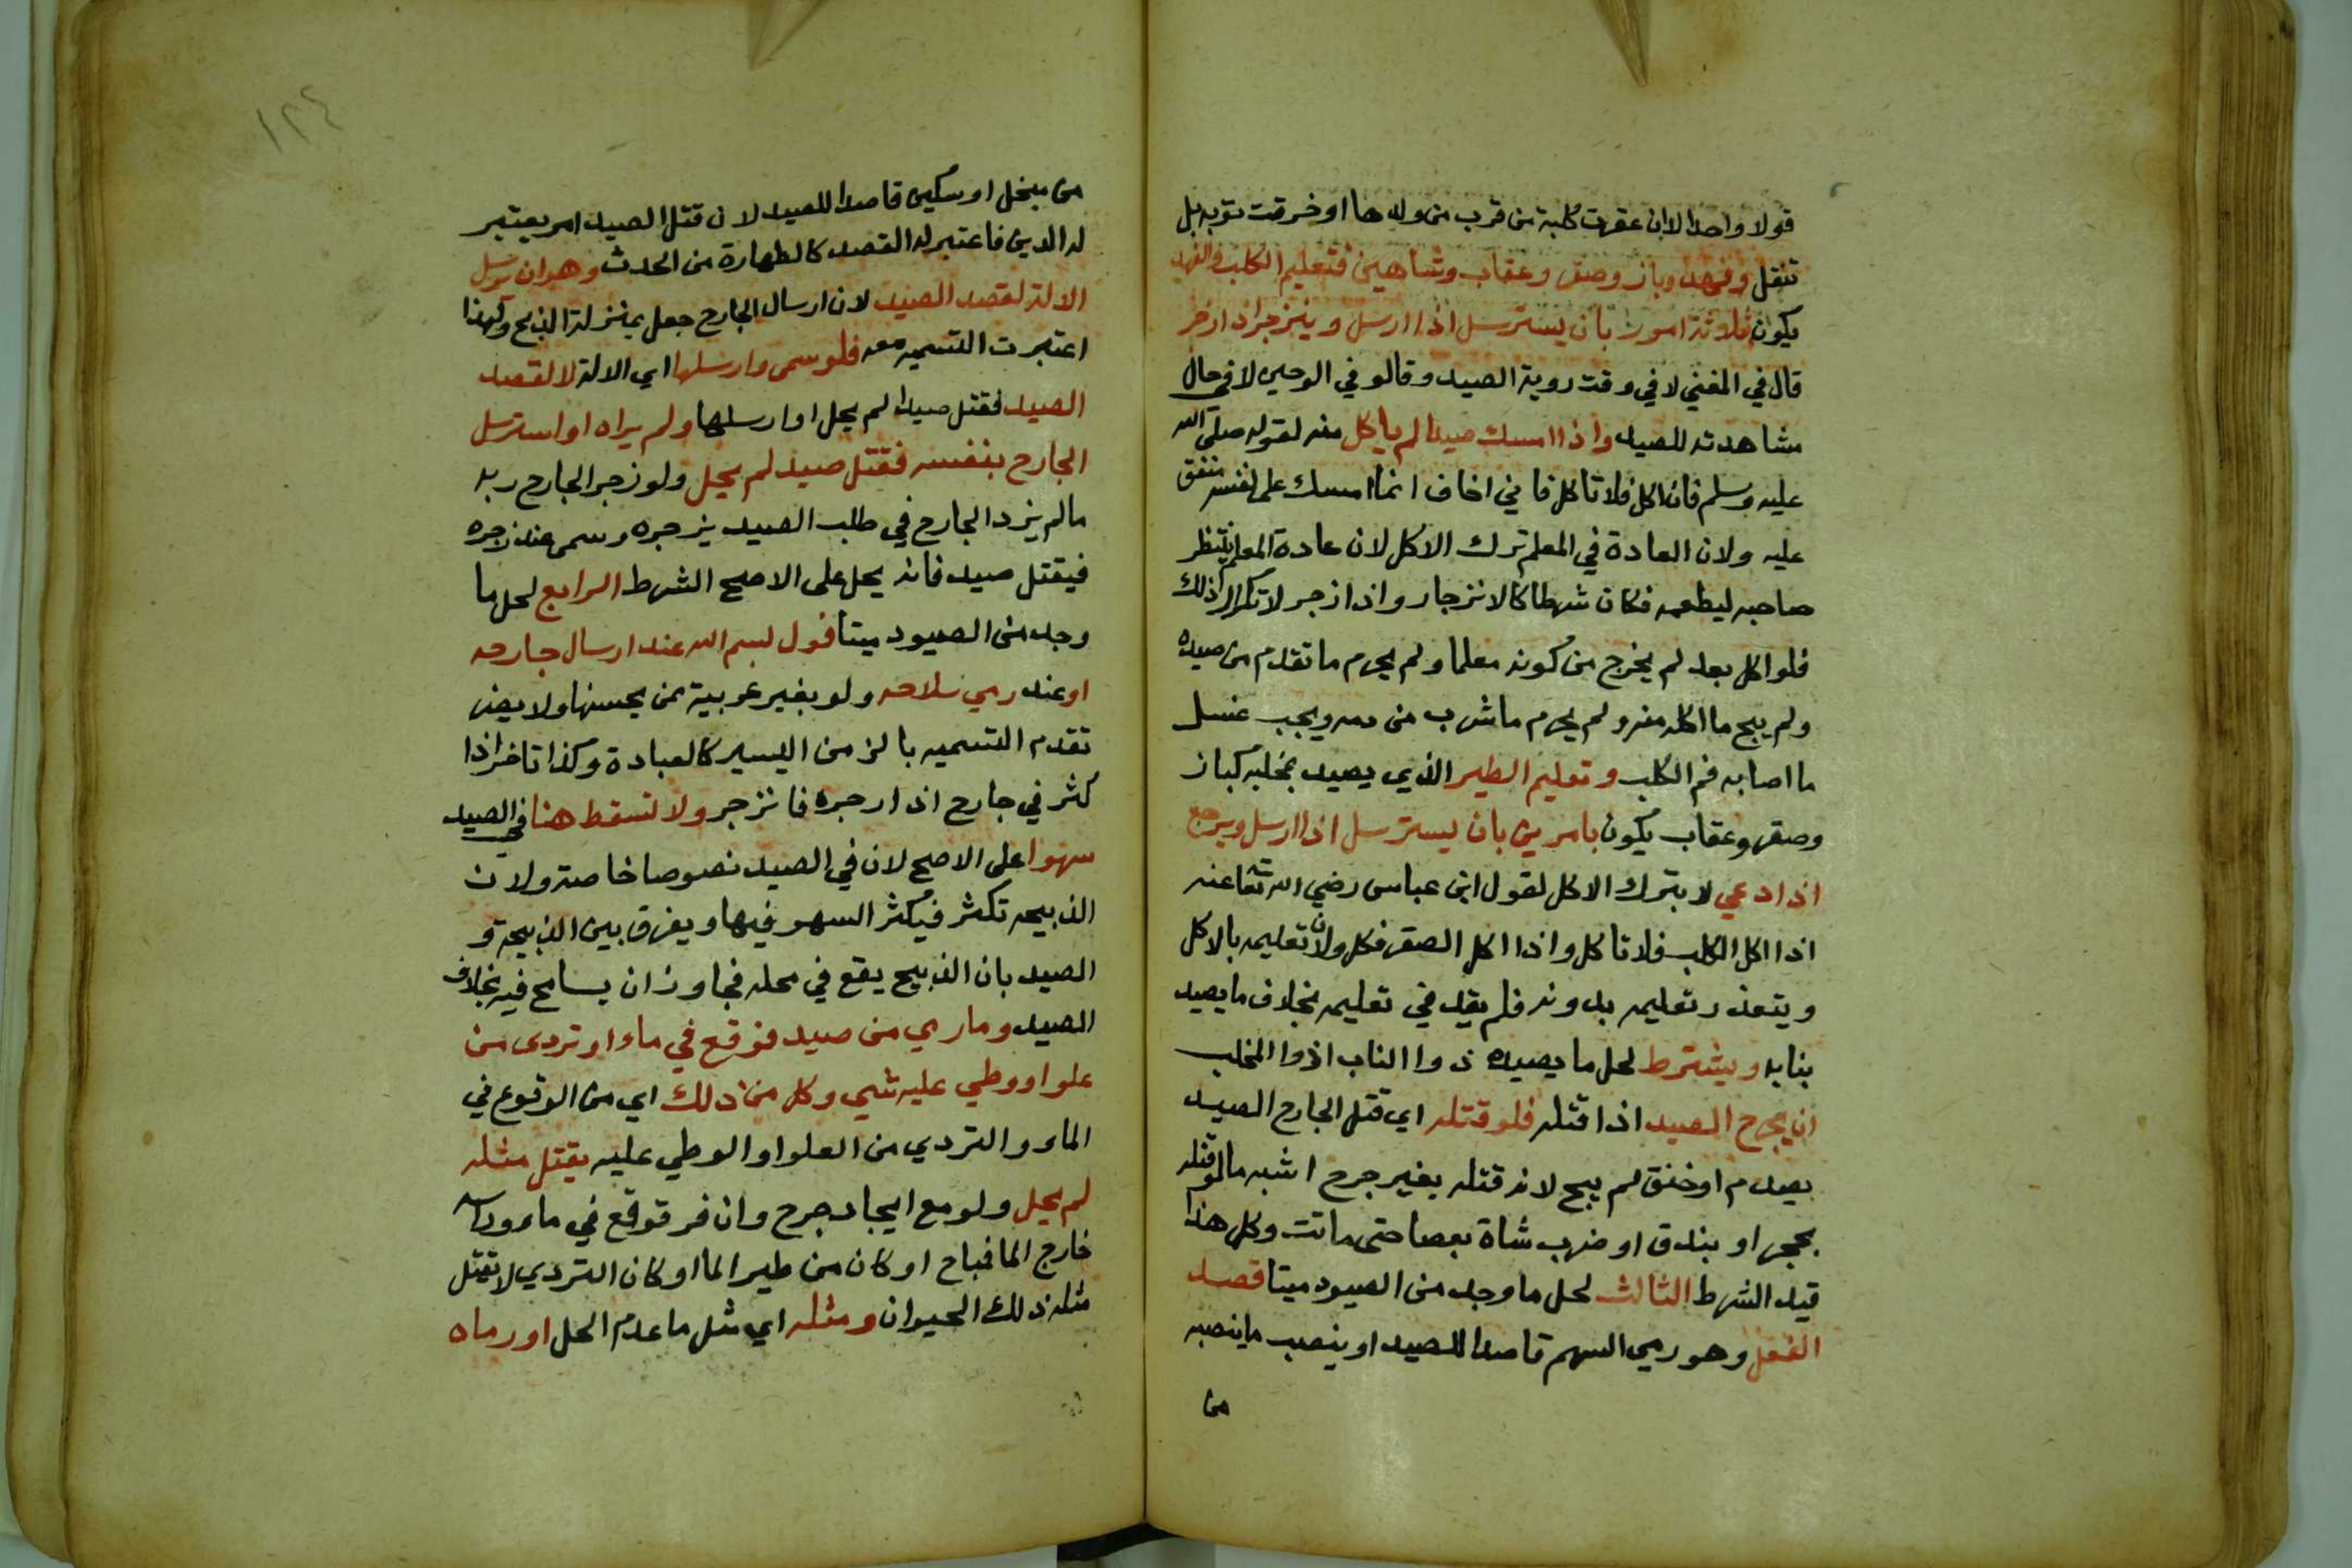 قولا واحدا لا ان عقرت كلبة من قرب من ولدها او خرقت ثوبه بل
تنقل وفهد وباز وصقر وعقاب وشاهين فتعليم الكلب والفهد
يكون ثلاثة امور بان يسترسل اذا ارسل وينزجر اذا زجر
قال في المغني لا في وقت روية الصيد وقالو في الوجيز لا في حال
مشاهدته للصيد واذا امسك صيدا لم ياكل منه لقوله صلى الله
عليه وسلم فان اكل فلا تاكل فاني اخاف انما امسك على نفسه متفق
عليه ولان العادة في المعلم ترك الاكل لان عادة المعلم ينتظر
صاحبه ليطعمه فكان شرطا كالانزجار واذا زجر لا تكرار ذلك
فلو اكل بعد لم يخرج من كونه معلما ولم يحرم ما تقدم من صيده
ولم يبح ما اكله منه ولم يحرم ما شرب من دمه ويجب غسل
ما اصابه فم الكلب وتعليم الطير الذي يصيد بمخلبه كباز
وصقر وعقاب يكون بامرين بان يسترسل اذا ارسل ويرجع
اذا دعي لا بترك الاكل لقول ابن عباس رضي الله تعا عنه
اذا اكل الكلب فلا تاكل واذا اكل الصقر فكل ولان تعليمه بالاكل
ويتعذر تعليمه بدونه فلم يقد في تعليمه بخلاف ما يصيد
بنابه ويشترط لحل ما يصيده ذوا الناب اذوا المخلب
ان يجرح الصيد اذا قتله فلو قتله اي قتل الجارح الصيد
بصدم او خنق لم يبح لانه قتله بغير جرح اشبه ما لو قتله
بحجر او بندق او ضرب شاة بعصا حتى ماتت وكل هذا
قيد الشرط الثالث لحل ما وجد من الصيود ميتا قصد
الفعل وهو رمي السهم قاصدا للصيد او ينصب ما ينصبه
من
١٢٤
من منجل او سكين قاصدا للصيد لان قتل الصيد امر يعتبر
له الدين فاعتبر له القصد كالطهارة من الحدث وهو ان يرسل
الالة لقصد الصيد لان ارسال الجارح جعل بمنزلة الذبح ولهذا
اعتبرت التسميه معه فلو سمى وارسلها اي الالة لا لقصد
الصيد فقتل صيدا لم يحل او ارسلها ولم يراه او استرسل
الجارح بنفسه فقتل صيد لم يحل ولو زجر الجارح ربه
ما لم يزد الجارح في طلب الصيد بزجره وسمى عند زجره
فيقتل صيد فانه يحل على الاصح الشرط الرابع لحل ما
وجد من الصيود ميتا قول بسم الله عند ارسال جارحه
او عند رمي سلاحه ولو بغير عربية ممن يحسنها ولا يضر
تقدم التسميه بالزمن اليسير كالعبادة وكذا تاخر اذا
كثر في جارح اذا زجره فانزجر ولا تسقط هنا في الصيد
سهوا على الاصح لان في الصيد نصوصا خاصة ولان
الذبيحه تكثر فيكثر السهو فيها ويفرق بين الذبيحة و
الصيد بان الذبيح يقع في محله فجاوز ان يسامح فيه بخلاف
الصيد وما رمي من صيد فوقع في ماء او تردى من
علو او وطي عليه شي وكل من ذلك اي من الوقوع في
الماء والتردي من العلو او الوطي عليه يقتل مثله
لم يحل ولو مع ايجاد جرح وان فر فوقع في ماء وراسه
خارج الما فمباح او كان من طير الما او كان التردي لا يقتل
مثله ذلك الحيوان ومثله اي مثل ما عدم الحل او رماه